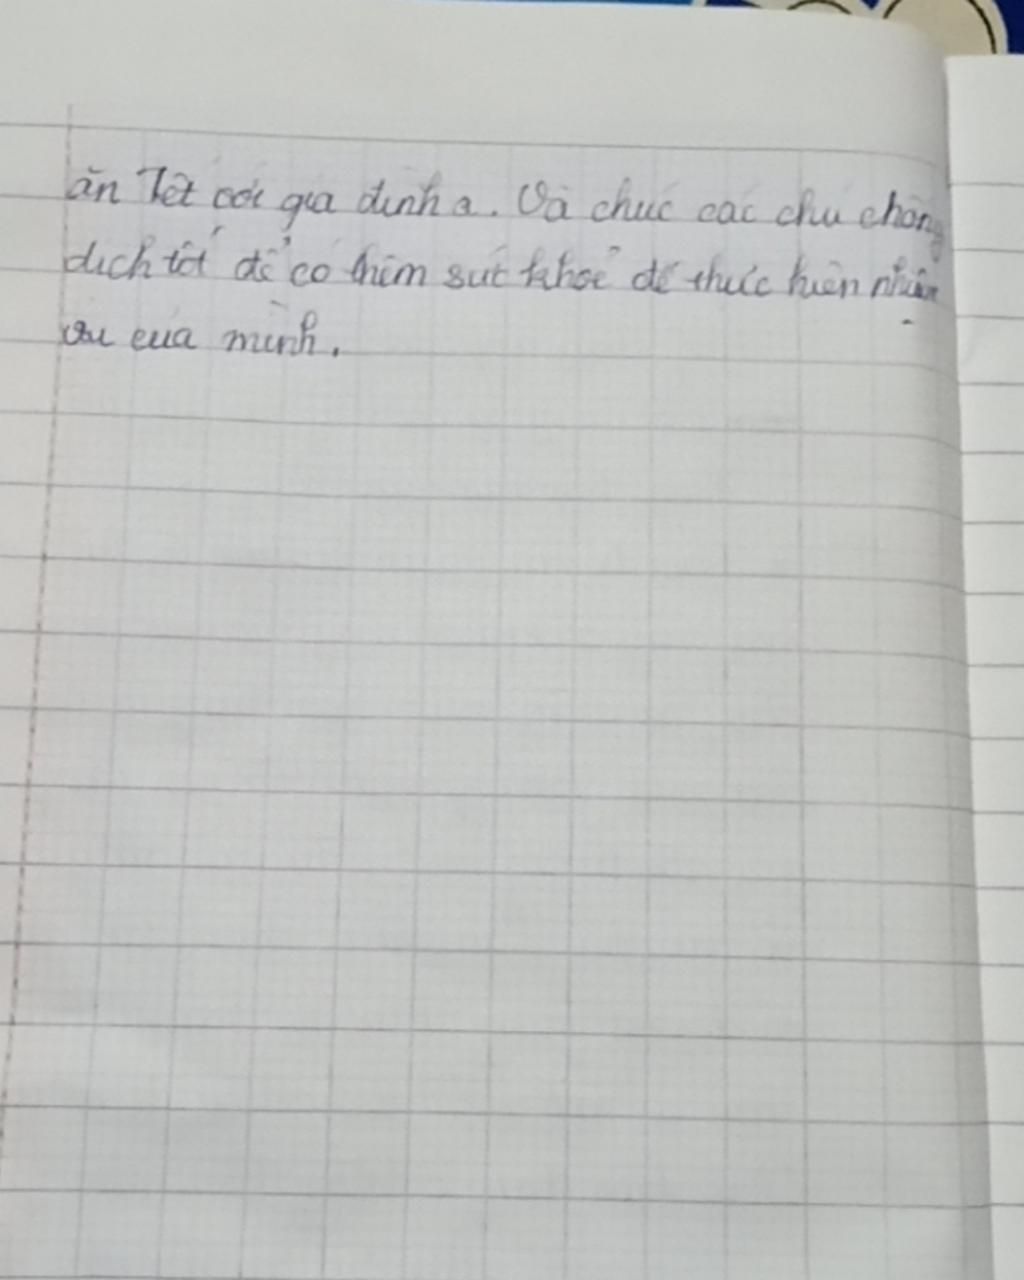 ăn Tết với gia đình ạ. Và chúc các chú chống
dịch tốt để có thêm sức khoẻ để thực hiện nhiệm
vụ của mình.